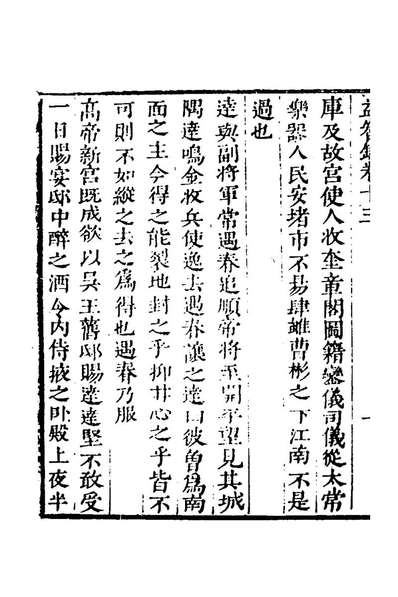 益智錄卷十三
庫及故宮使人收奎章閣圖籍鑾儀司儀從太常
樂器人民安堵市不易肆雖曹彬之下江南不是
過也
達與副將軍常遇春追順帝將至開平望見其城
隅達鳴金收兵使逸去遇春讓之達曰彼曾為南
面之主今得之能裂地封之乎抑甘心之乎皆不
可則不如縱之去之為得也遇春乃服
高帝新宮既成欲以吳王舊邸賜達達堅不敢受
一日賜宴邸中醉之酒令內侍掖之卧殿上夜半